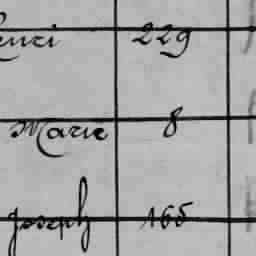 Henri 229
Marie 8
Joseph 165